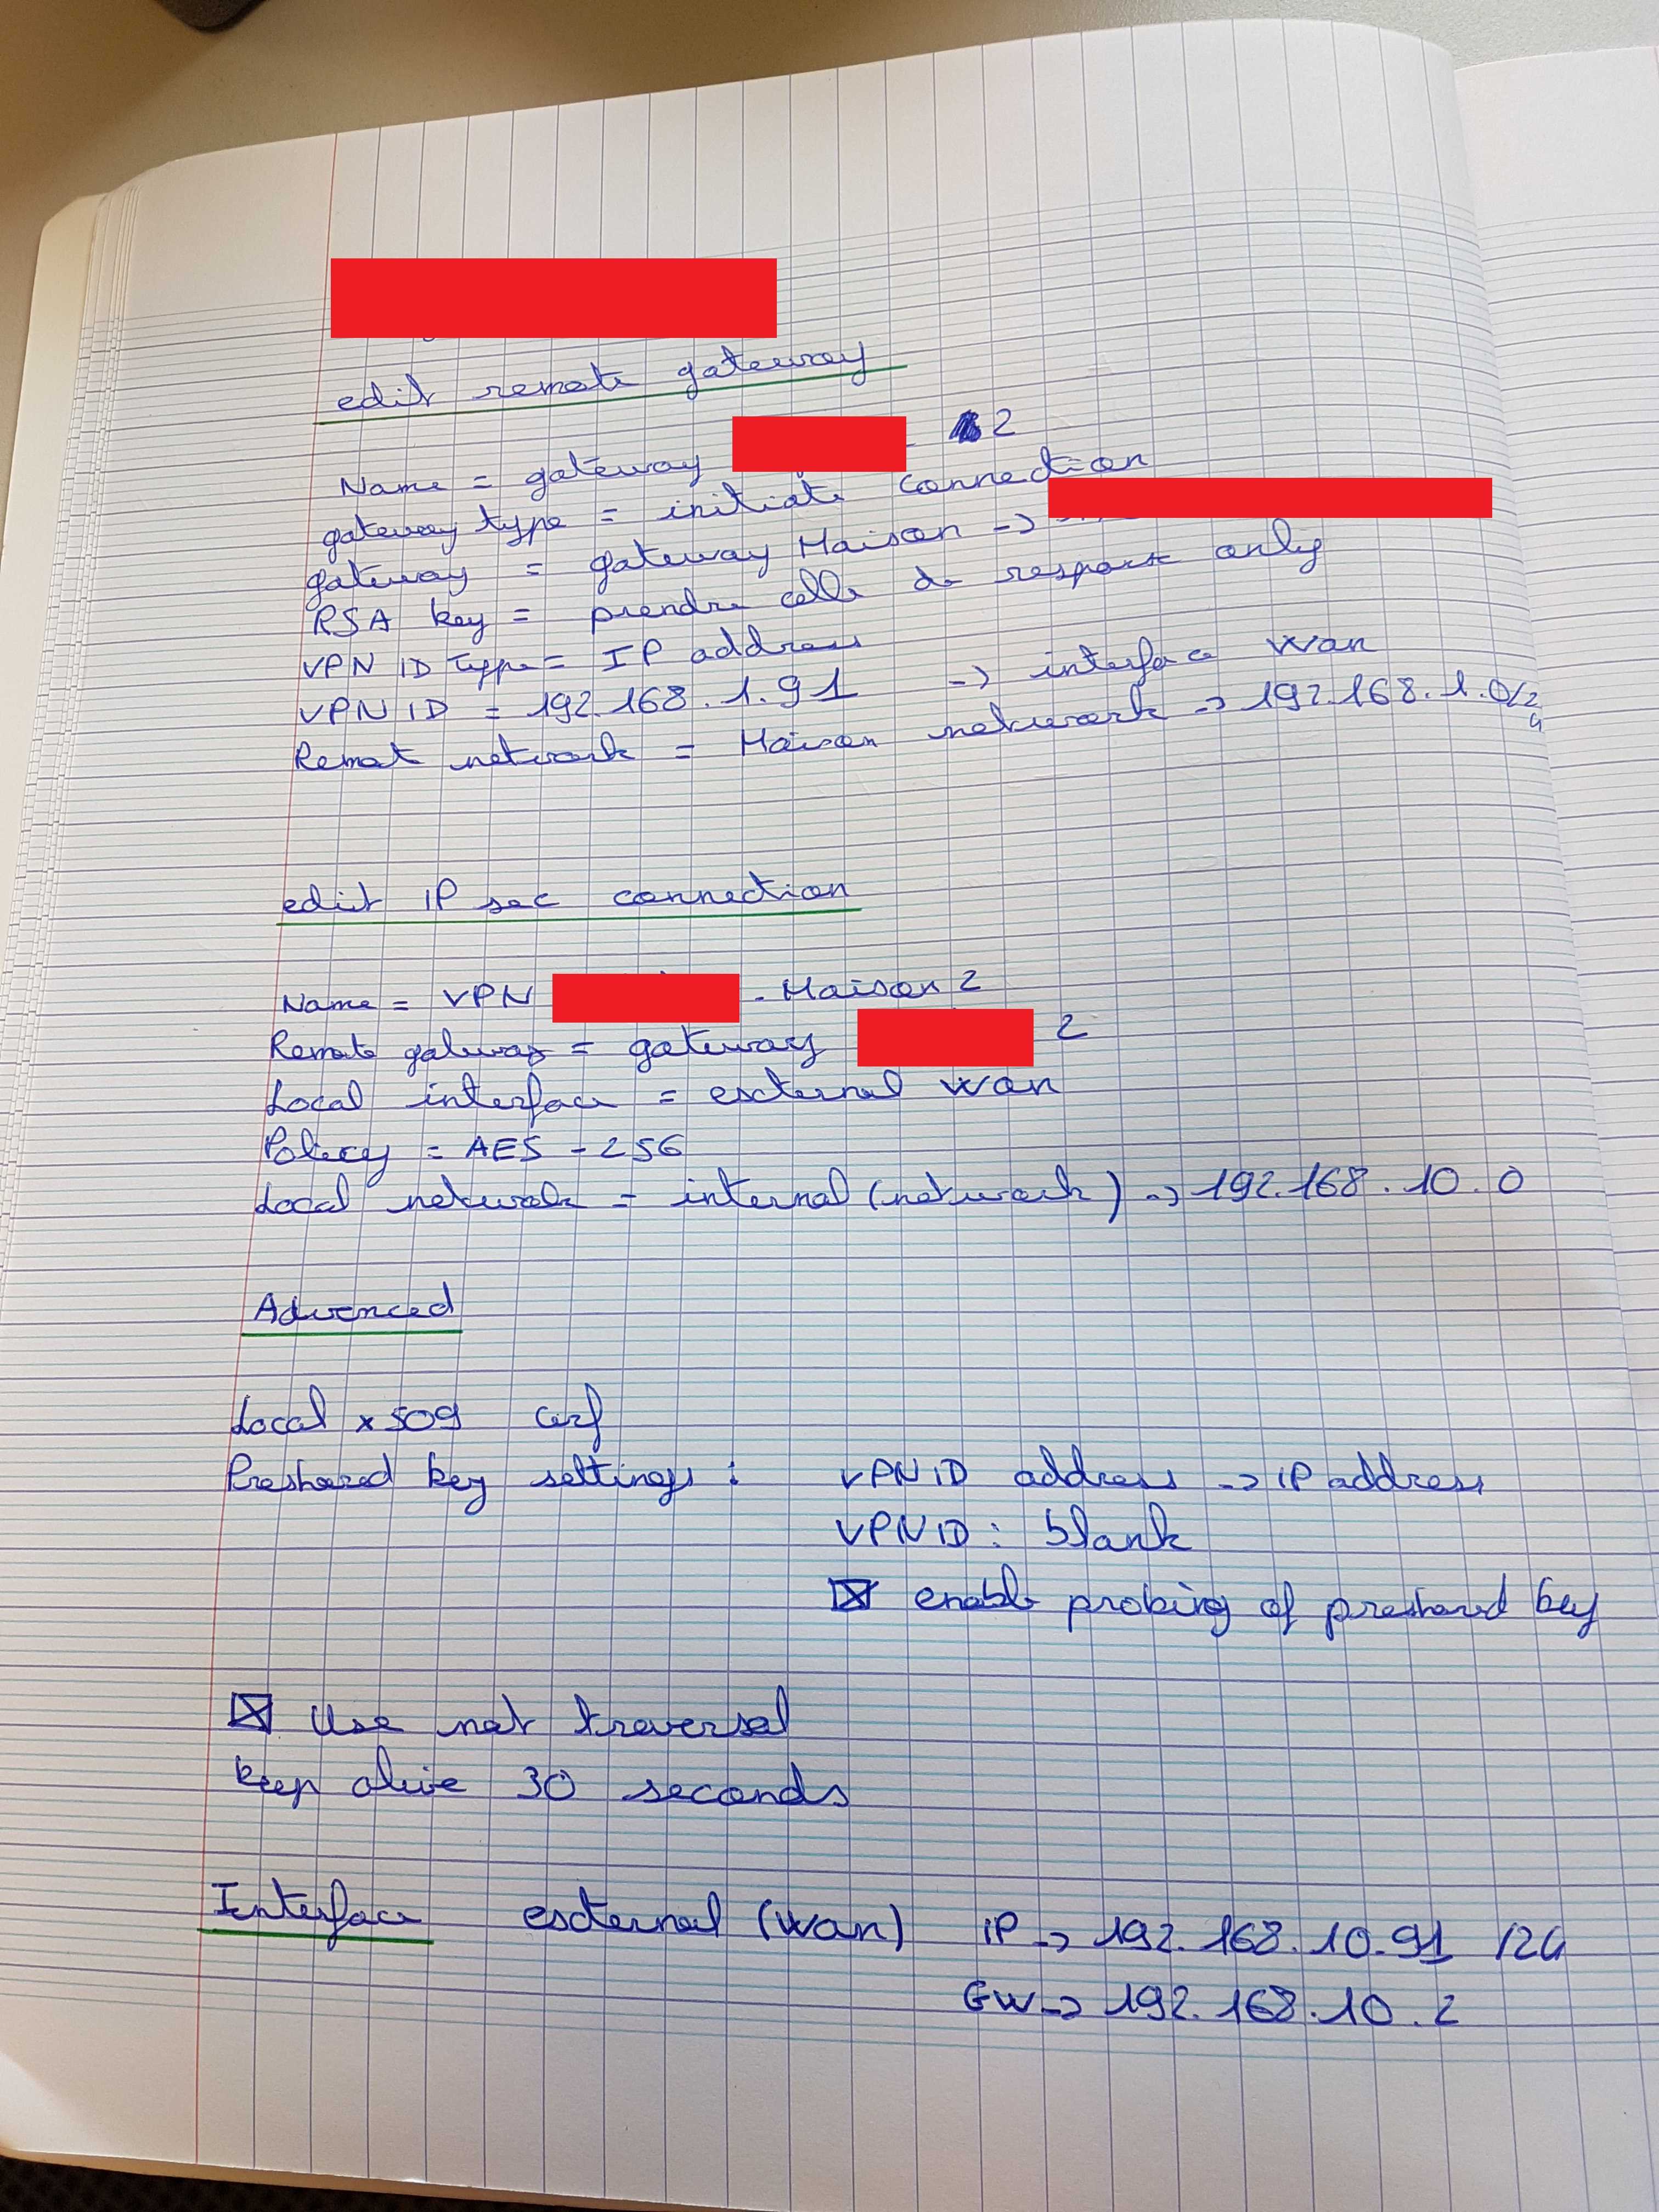 edit remote gateway
Name = gateway 2
gateway type = initiate connection
gateway = gateway Maison ->
RSA key = prendre celle de respont only
VPN ID Type = IP address
VPN ID = 192.168.1.91 -> interface Wan
Remot network = Maison network -> 192.168.1.0/24
edit IP sec connection
Name = VPN - Maison 2
Remote gateway = gateway 2
Local interface = external wan
Policy = AES - 256
Local network = internal (network) -> 192.168.10.0
Advenced
Local x509 Cerf
Preshared key settings : VPN ID address -> IP address
VPN ID : blank
☒ enable probing of preshared key
☒ Use nat traversal
keep alive 30 seconds
Interface external (wan) IP -> 192.168.10.91 /24
GW -> 192.168.10.2